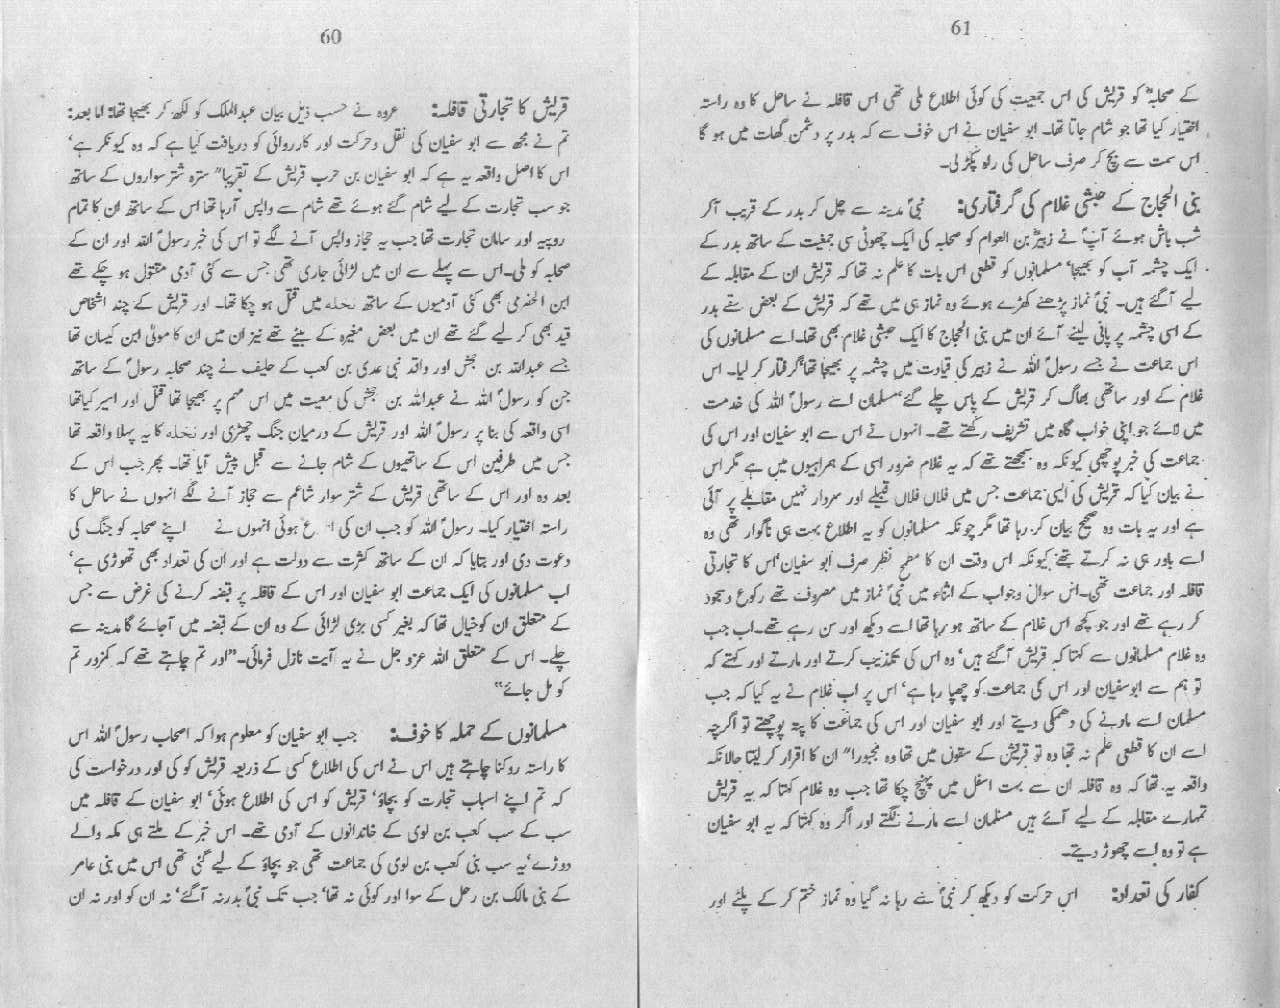 60
قریش کا تجارتی قافلہ: عروہ نے حسب ذیل بیان عبدالملک کو لکھ کر بھیجا تھا: اما بعد:
تم نے مجھ سے ابو سفیان کی نقل و حرکت اور کارروائی کو دریافت کیا ہے کہ وہ کیونکر ہے‘
اس کا اصل واقعہ یہ ہے کہ ابو سفیان بن حرب قریش کے تقریبا" سترہ شتر سواروں کے ساتھ
جو سب تجارت کے لیے شام گئے ہوئے تھے شام سے واپس آرہا تھا اس کے ساتھ ان کا تمام
روپیہ اور سامان تجارت تھا جب یہ حجاز واپس آنے لگے تو اس کی خبر رسولؐ اللہ اور ان کے
صحابہ کو ملی۔ اس سے پہلے سے ان میں لڑائی جاری تھی جس سے کئی آدمی مقتول ہو چکے تھے
ابن الحضرمی بھی کئی آدمیوں کے ساتھ نخلہ میں قتل ہو چکا تھا۔ اور قریش کے چند اشخاص
قید بھی کر لیے گئے تھے ان میں بعض مغیرہ کے بیٹے تھے نیز ان میں ان کا مولیٰ ابن کیسان تھا
جسے عبداللہ بن جحش اور واقد نبی عدی بن کعب کے حلیف نے چند صحابہ رسولؐ کے ساتھ
جن کو رسولؐ اللہ نے عبداللہ بن جحش کی معیت میں اس مہم پر بھیجا تھا قتل اور اسیر کیا تھا
اسی واقعہ کی بنا پر رسولؐ اللہ اور قریش کے درمیان جنگ چھڑی اور نخلہ کا یہ پہلا واقعہ تھا
جس میں طرفین اس کے ساتھیوں کے شام جانے سے قبل پیش آیا تھا۔ پھر جب اس کے
بعد وہ اور اس کے ساتھی قریش کے شتر سوار شاعم سے حجاز آنے لگے انہوں نے ساحل کا
راستہ اختیار کیا۔ رسولؐ اللہ کو جب ان کی ہوئی انہوں نے اپنے صحابہ کو جنگ کی
دعوت دی اور بتایا کہ ان کے ساتھ کثرت سے دولت ہے اور ان کی تعداد بھی تھوڑی ہے‘
اب مسلمانوں کی ایک جماعت ابو سفیان اور اس کے قافلہ پر قبضہ کرنے کی غرض سے جس
کے متعلق ان کو خیال تھا کہ بغیر کسی بڑی لڑائی کے وہ ان کے قبضہ میں آجائے گا مدینہ سے
چلے۔ اس کے متعلق اللہ عزوجل نے یہ آیت نازل فرمائی۔ "اور تم چاہتے تھے کہ کمزور تم
کو مل جائے"
مسلمانوں کے حملہ کا خوف: جب ابو سفیان کو معلوم ہوا کہ اصحاب رسولؐ اللہ اس
کا راستہ روکنا چاہتے ہیں اس نے اس کی اطلاع کسی کے ذریعہ قریش کو کی اور درخواست کی
کہ تم اپنے اسباب تجارت کو بچاؤ‘ قریش کو اس کی اطلاع ہوئی‘ ابو سفیان کے قافلہ میں
سب کے سب کعب بن لوی کے خاندانوں کے آدمی تھے۔ اس خبر کے ملتے ہی مکہ والے
دوڑے‘ یہ سب بنی کعب بن لوی کی جماعت تھی جو بچاؤ کے لیے گئی تھی اس میں بنی عامر
کے بنی مالک بن رحل کے سوا اور کوئی نہ تھا‘ جب تک نبیؐ بدر نہ آگئے‘ نہ ان کو اور نہ ان
61
کے صحابہؓ کو قریش کی اس جمعیت کی کوئی اطلاع ملی تھی اس قافلہ نے ساحل کا وہ راستہ
اختیار کیا تھا جو شام جاتا تھا۔ ابو سفیان نے اس خوف سے کہ بدر پر دشمن گھات میں ہو گا
اس سمت سے بچ کر صرف ساحل کی راہ پکڑ لی۔
بنی الحجاج کے حبشی غلام کی گرفتاری: نبیؐ مدینہ سے چل کر بدر کے قریب آکر
شب باش ہوئے آپؐ نے زبیرؓ بن العوام کو صحابہ کی ایک چھوٹی سی جمعیت کے ساتھ بدر کے
ایک چشمہ آب کو بھیجا‘ مسلمانوں کو قطعی اس بات کا علم نہ تھا کہ قریش ان کے مقابلہ کے
لیے آگئے ہیں۔ نبیؐ نماز پڑھنے کھڑے ہوئے وہ نماز ہی میں تھے کہ قریش کے بعض سقے بدر
کے اسی چشمہ پر پانی لینے آئے ان میں بنی الحجاج کا ایک حبشی غلام بھی تھا۔ اسے مسلمانوں کی
اس جماعت نے جسے رسولؐ اللہ نے زبیر کی قیادت میں چشمہ پر بھیجا تھا گرفتار کر لیا۔ اس
غلام کے اور ساتھی بھاگ کر قریش کے پاس چلے گئے‘ مسلمان اسے رسولؐ اللہ کی خدمت
میں لائے جو اپنی خواب گاہ میں تشریف رکھتے تھے۔ انہوں نے اس سے ابو سفیان اور اس کی
جماعت کی خبر پوچھی کیونکہ وہ سمجھتے تھے کہ یہ غلام ضرور اسی کے ہمراہیوں میں ہے مگر اس
نے بیان کیا کہ قریش کی ایسی جماعت جس میں فلاں فلاں قبیلے اور سردار نہیں مقابلے پر آئی
ہے اور یہ بات وہ صحیح بیان کر رہا تھا مگر چونکہ مسلمانوں کو یہ اطلاع بہت ہی ناگوار تھی وہ
اسے باور ہی نہ کرتے تھے کیونکہ اس وقت ان کا مطمح نظر صرف ابو سفیان‘ اس کا تجارتی
قافلہ اور جماعت تھی۔ اس سوال وجواب کے اثناء میں نبیؐ نماز میں مصروف تھے رکوع وسجود
کر رہے تھے اور جو کچھ اس غلام کے ساتھ ہو رہا تھا اسے دیکھ اور سن رہے تھے۔ اب جب
وہ غلام مسلمانوں سے کہتا کہ قریش آگئے ہیں‘ وہ اس کی تکذیب کرتے اور مارتے اور کہتے کہ
تو ہم سے ابوسفیان اور اس کی جماعت کو چھپا رہا ہے‘ اس پر اب غلام نے یہ کیا کہ جب
مسلمان اسے مارنے کی دھمکی دیتے اور ابو سفیان اور اس کی جماعت کا پتہ پوچھتے تو اگرچہ
اسے ان کا قطعی علم نہ تھا وہ تو قریش کے سقوں میں تھا وہ مجبورا" ان کا اقرار کر لیتا حالانکہ
واقعہ یہ تھا کہ وہ قافلہ ان سے بہت اسفل میں پہنچ چکا تھا جب وہ غلام کہتا کہ یہ قریش
تمہارے مقابلہ کے لیے آئے ہیں مسلمان اسے مارنے لگتے اور اگر وہ کہتا کہ یہ ابو سفیان
ہے تو وہ اسے چھوڑ دیتے۔
کفار کی تعداد: اس حرکت کو دیکھ کر نبیؐ سے رہا نہ گیا وہ نماز ختم کر کے پلٹے اور